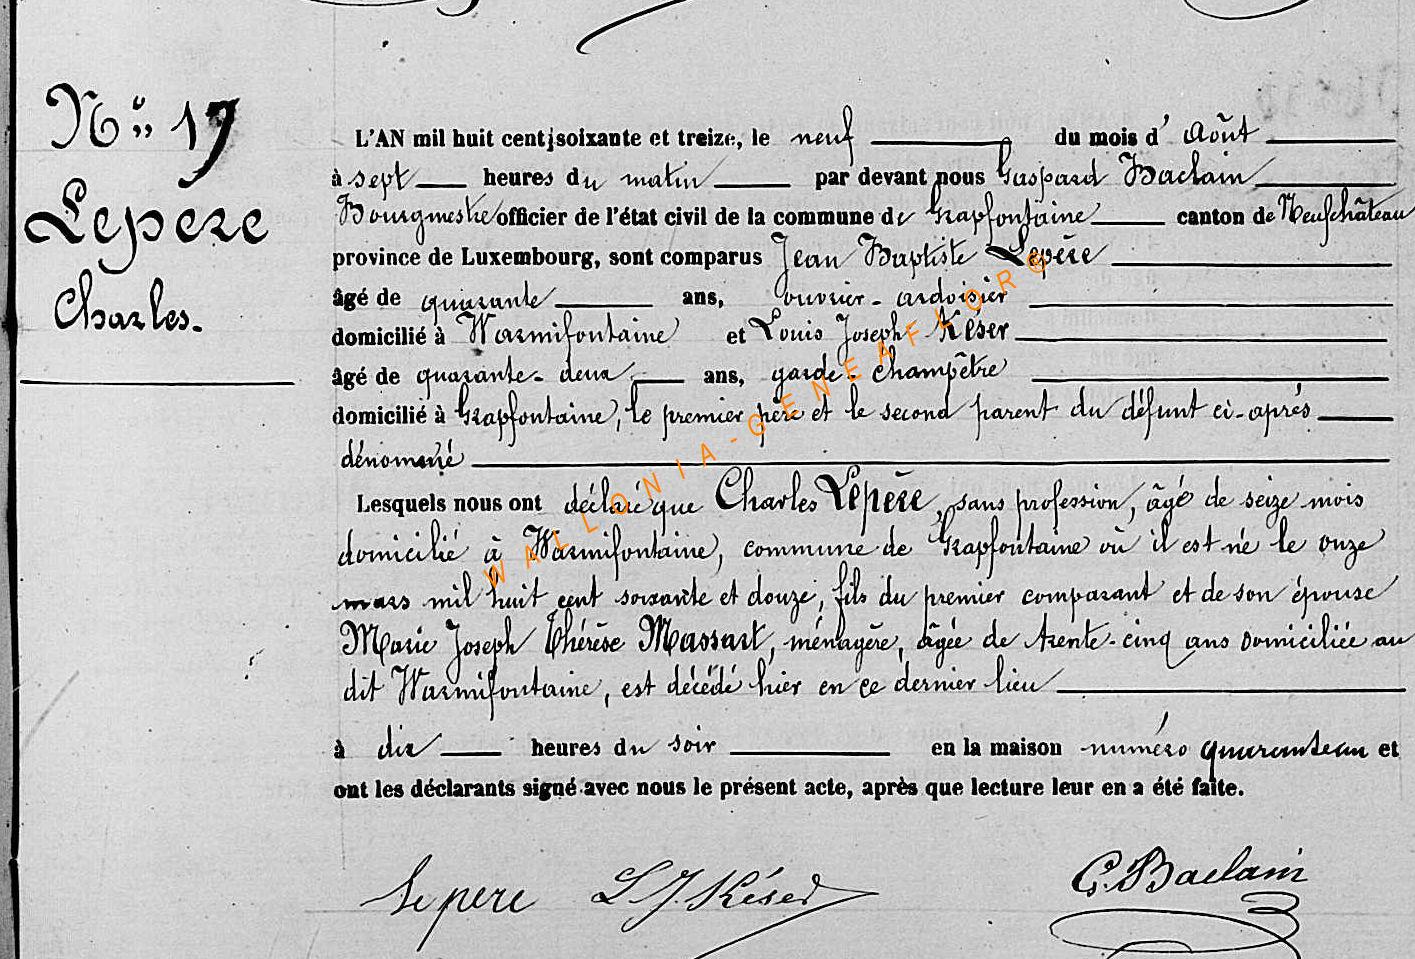 Nº 17
Lepere
Charles.
L'AN mil huit cent soixante et treize, le neuf du mois d'Août
à sept heures du matin par devant nous Gaspard Baclain
Bourgmestre officier de l'état civil de la commune de Grapfontaine canton de Neufchâteau
province de Luxembourg, sont comparus Jean Baptiste Lepère
âgé de quarante ans, ouvrier-ardoisier
domicilié à Warmifontaine et Louis Joseph Késer
âgé de quarante-deux ans, garde-champêtre
domicilié à Grapfontaine, le premier père et le second parent du défunt ci-après
dénommé
Lesquels nous ont déclaré que Charles Lepère, sans profession, âgé de seize mois
domicilié à Warmifontaine, commune de Grapfontaine où il est né le onze
mars mil huit cent soixante et douze, fils du premier comparant et de son épouse
Marie Joseph Thérèse Massart, ménagère, âgée de trente-cinq ans domiciliée au
dit Warmifontaine, est décédé hier en ce dernier lieu
à dix heures du soir en la maison numéro et
ont les déclarants signé avec nous le présent acte, après que lecture leur en a été faite.
Lepere L J Késer G. Baclain
WALLONIA-GENEAFLOR©